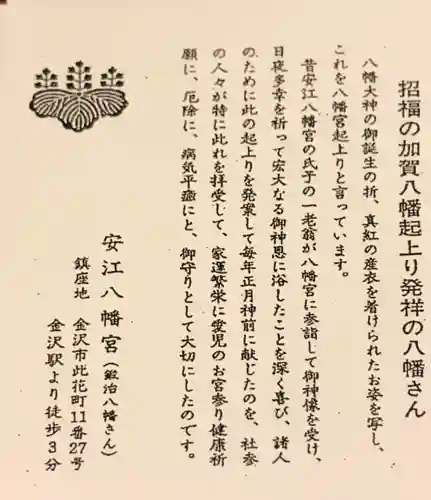 招福の加賀八幡起上り発祥の八幡さん
八幡大神の御誕生の折、真紅の産衣を着けられたお姿を写し、
これを八幡宮起上りと言っています。
昔安江八幡宮の氏子の一老翁が八幡宮に参詣して御神像を受け、
日夜多幸を祈って宏大なる御神恩に浴したことを深く喜び、諸人
のために此の起上りを発案して毎年正月神前に献じたのを、社参
の人々が特に此れを拝受して、家運繁栄に愛児のお宮参り健康祈
願に、厄除に、病気平癒にと、御守りとして大切にしたのです。
安江八幡宮(鍛治八幡さん)
鎮座地 金沢市此花町11番27号
金沢駅より徒歩3分